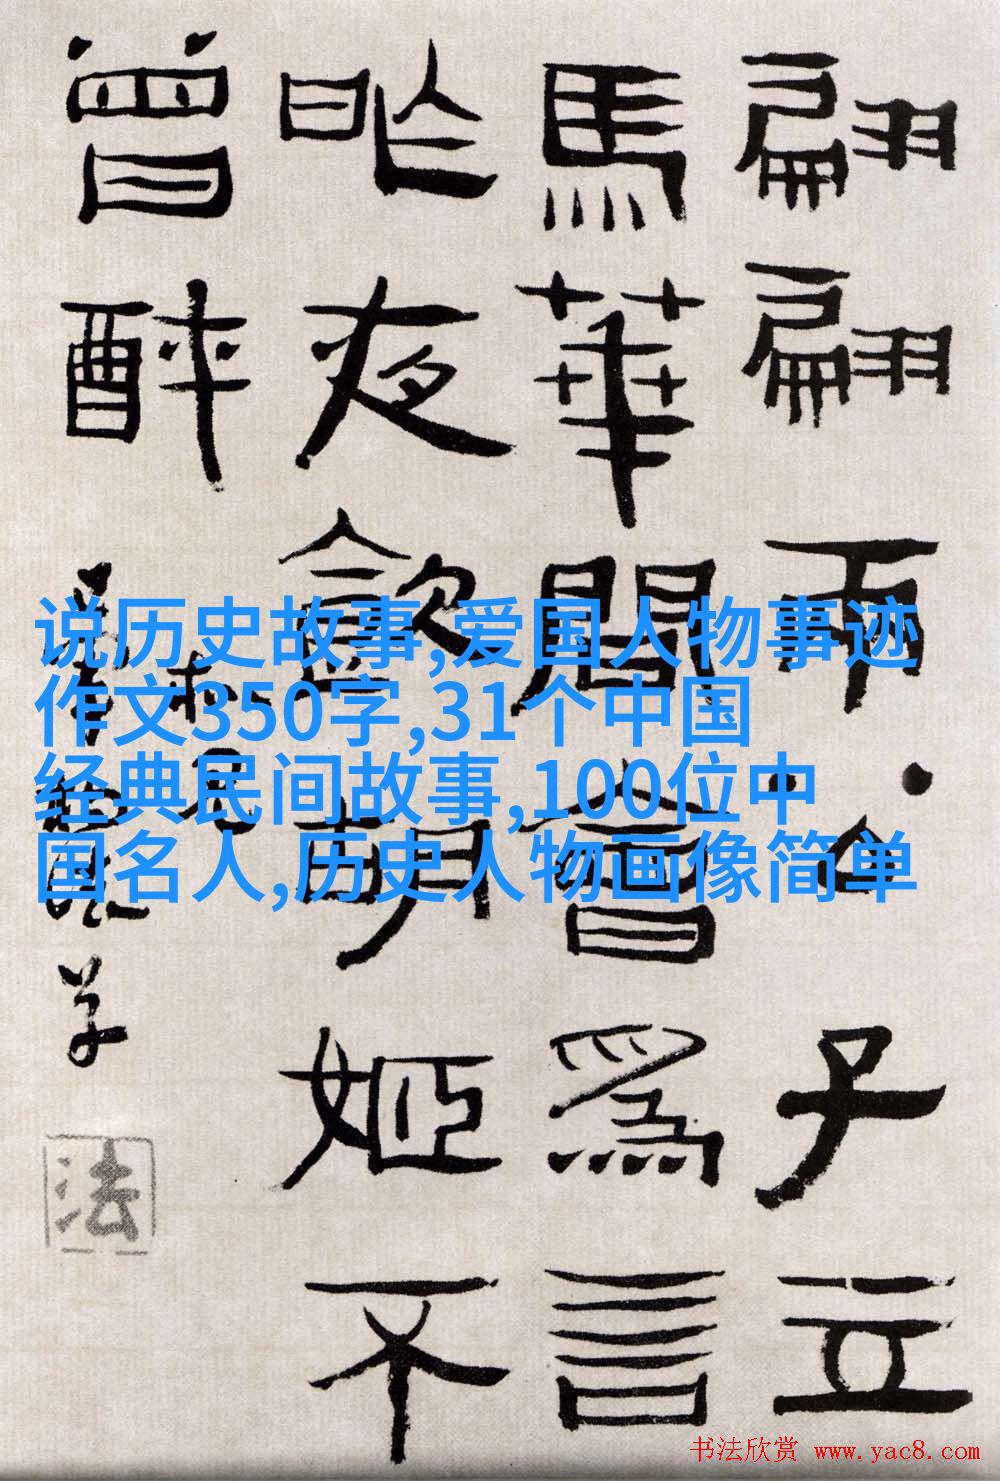 翩翩兩公子立
馬華間會為言
昨夜飲胡姬不
曾醉
说历史故事,爱国人物事迹
作文350字,31个中国
经典民间故事,100位中
国名人,历史人物画像简单
法
书法欣赏 www.yac8.com